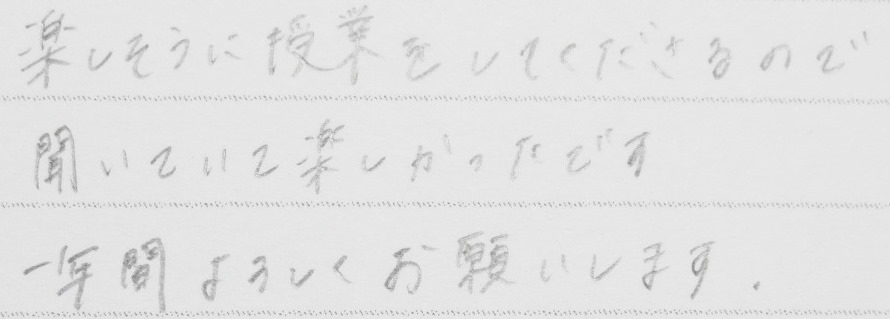 楽しそうに授業をしてくださるので
聞いていて楽しかったです
一年間よろしくお願いします.